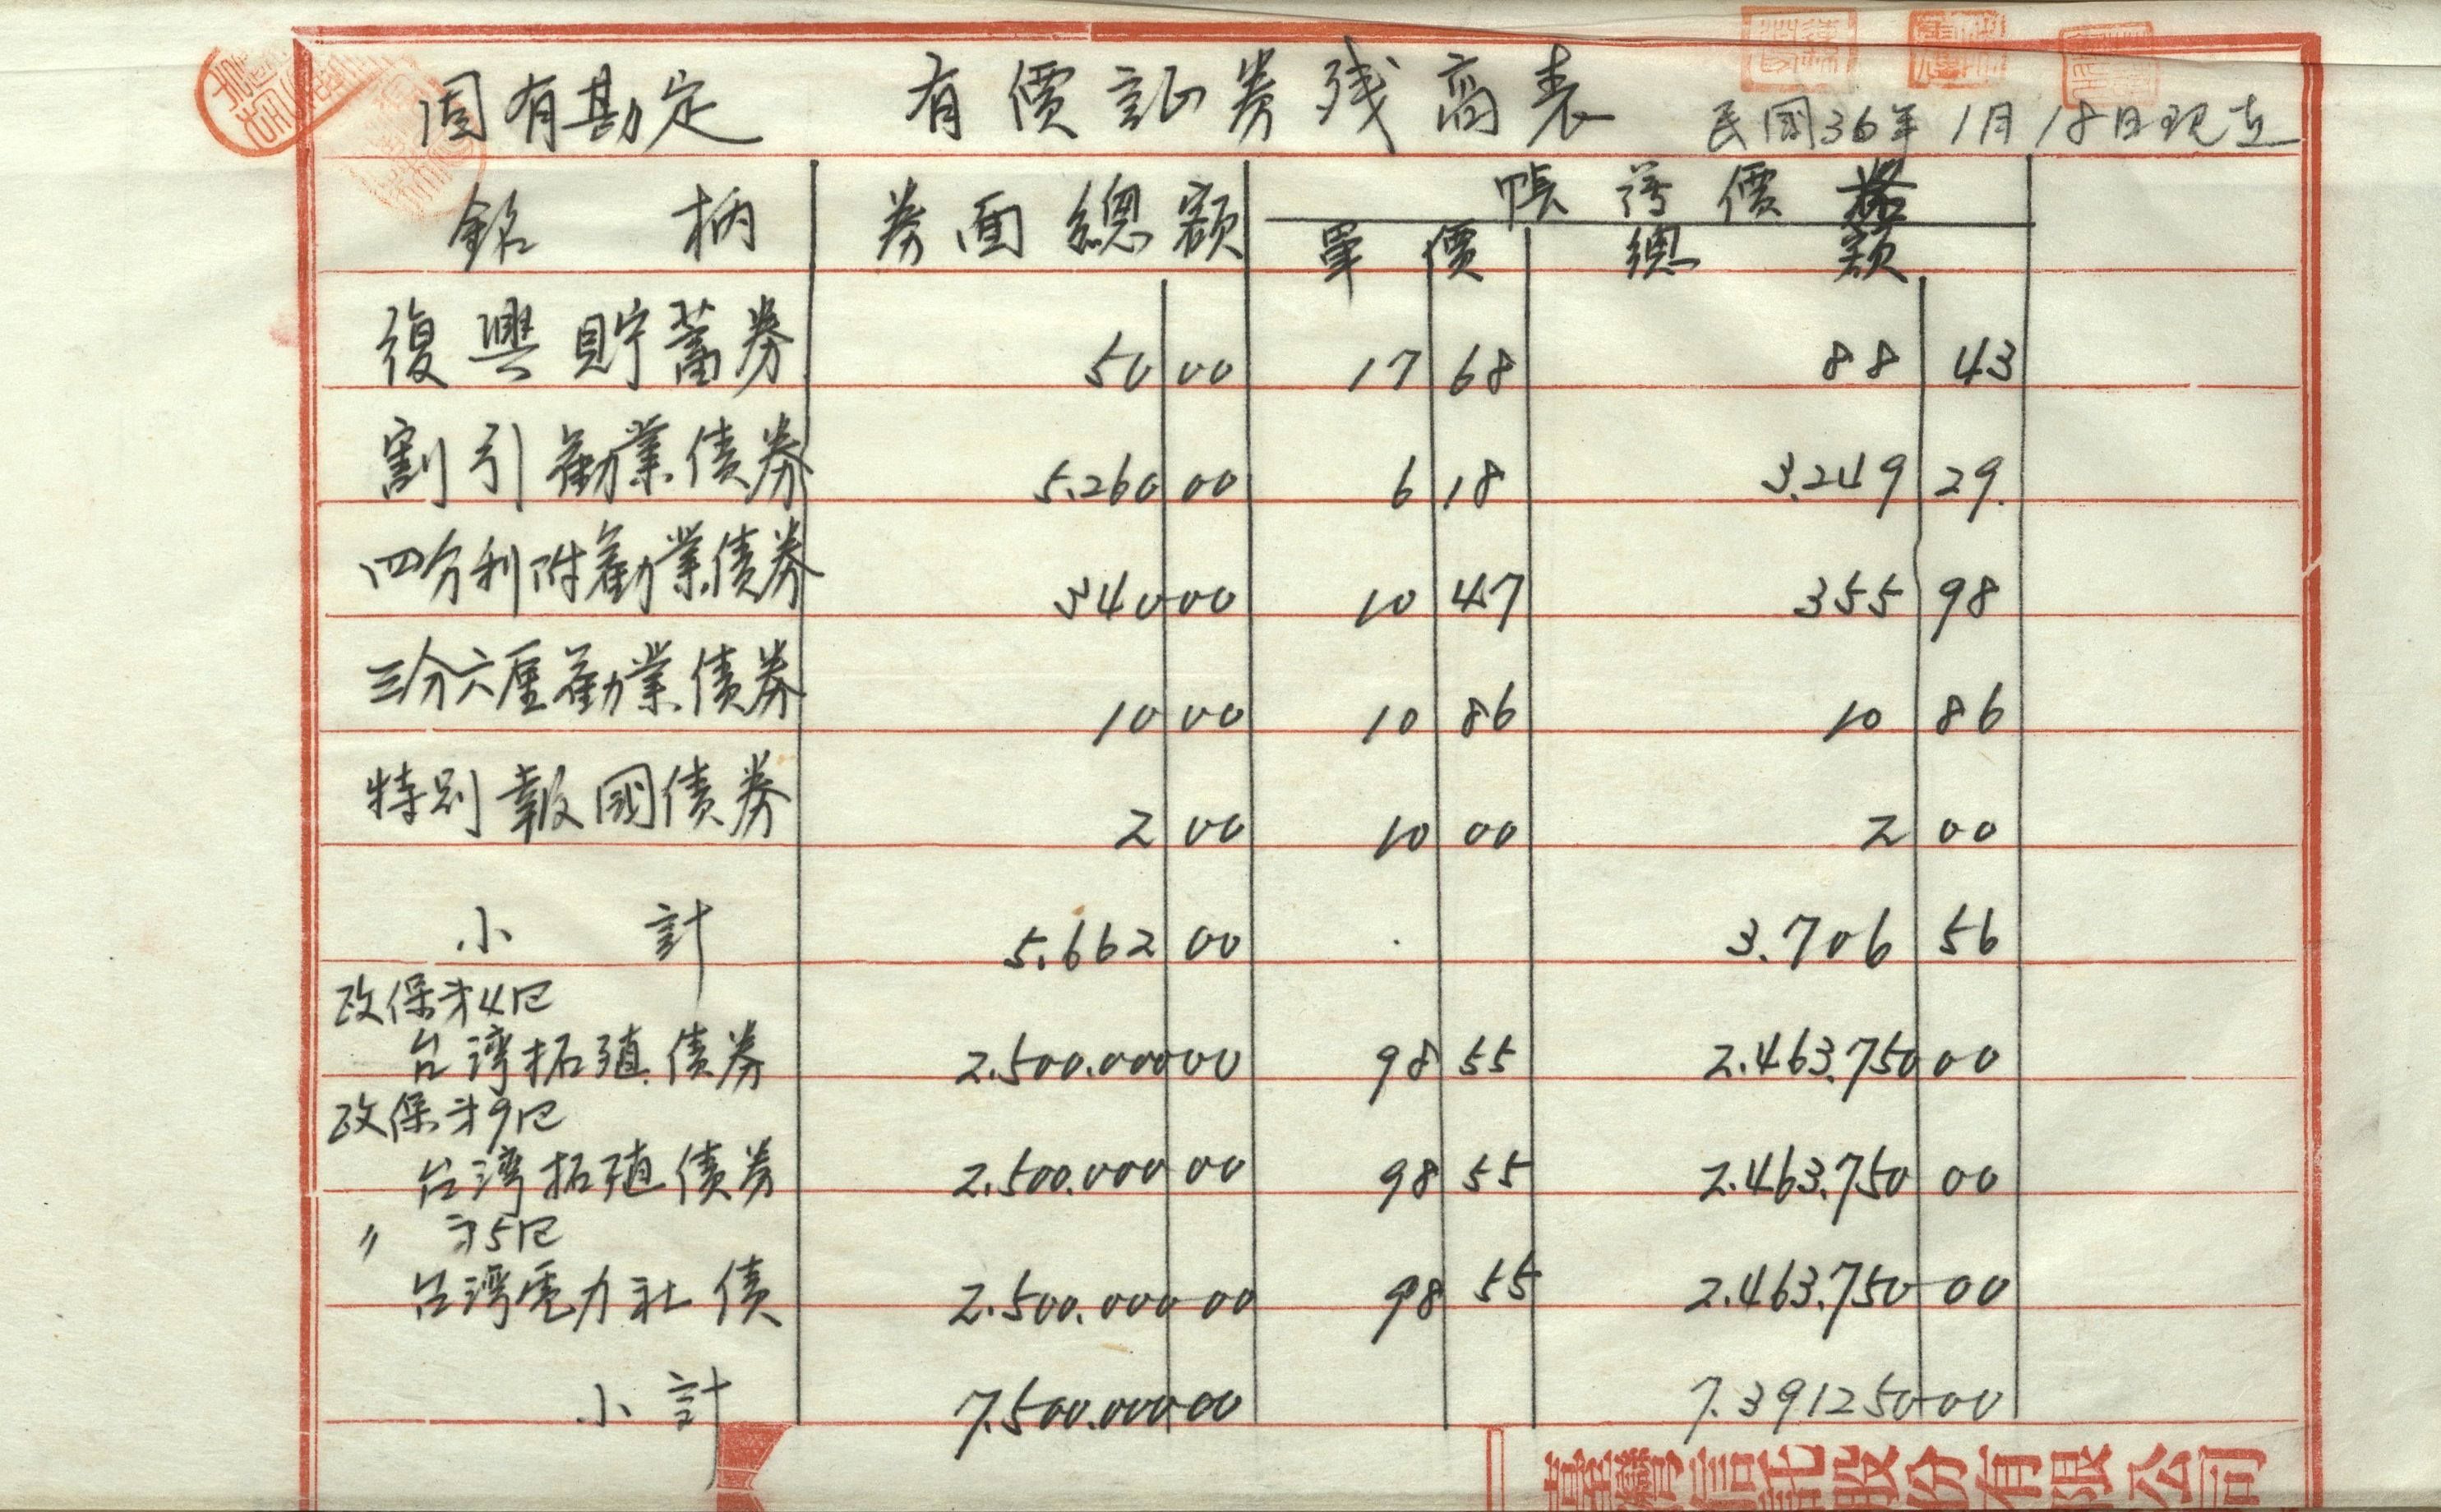 固有勘定 有價証券残高表 民國36年1月18日現在
銘柄 券面總額 帳簿價格
單價 總額
復興貯蓄券 50 00 17 68 88 43
割引勧業債券 5.260 00 6 18 3.249 29.
四分利附勧業債券 340 00 10 47 355 98
三分六厘勧業債券 10 00 10 86 10 86
特別報國債券 2 00 10 00 2 00
小計 5.662 00 3.706 56
政保才4回
台湾拓殖債券 2.500.000 00 98 55 2.463.750 00
政保才9回
台湾拓殖債券 2.500.000 00 98 55 2.463.750 00
〃 才5回
台湾電力社債 2.500.000 00 98 55 2.463.750 00
小計 7.500.000 00 7.391250 00
臺灣信託股份有限公司